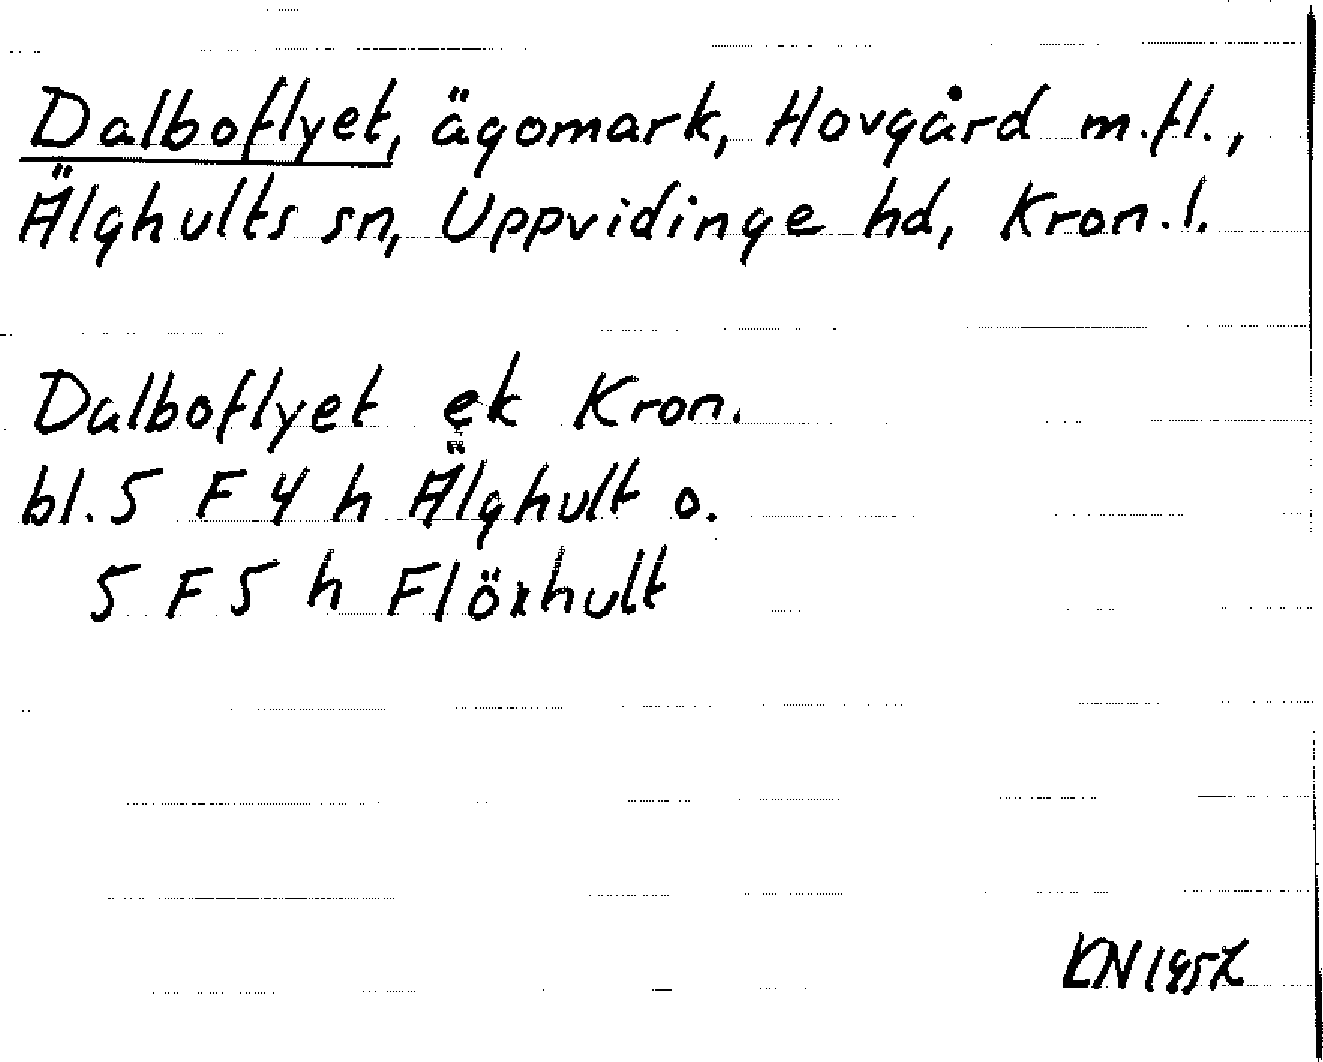 Dalboflyet, ägomark, Hovgård m.fl.,
Älghults sn, Uppvidinge hd, Kron.l.
Dalboflyet ek Kron.
bl. 5 F 4 h Älghult o.
5 F 5 h Flöxhult
KN 1957